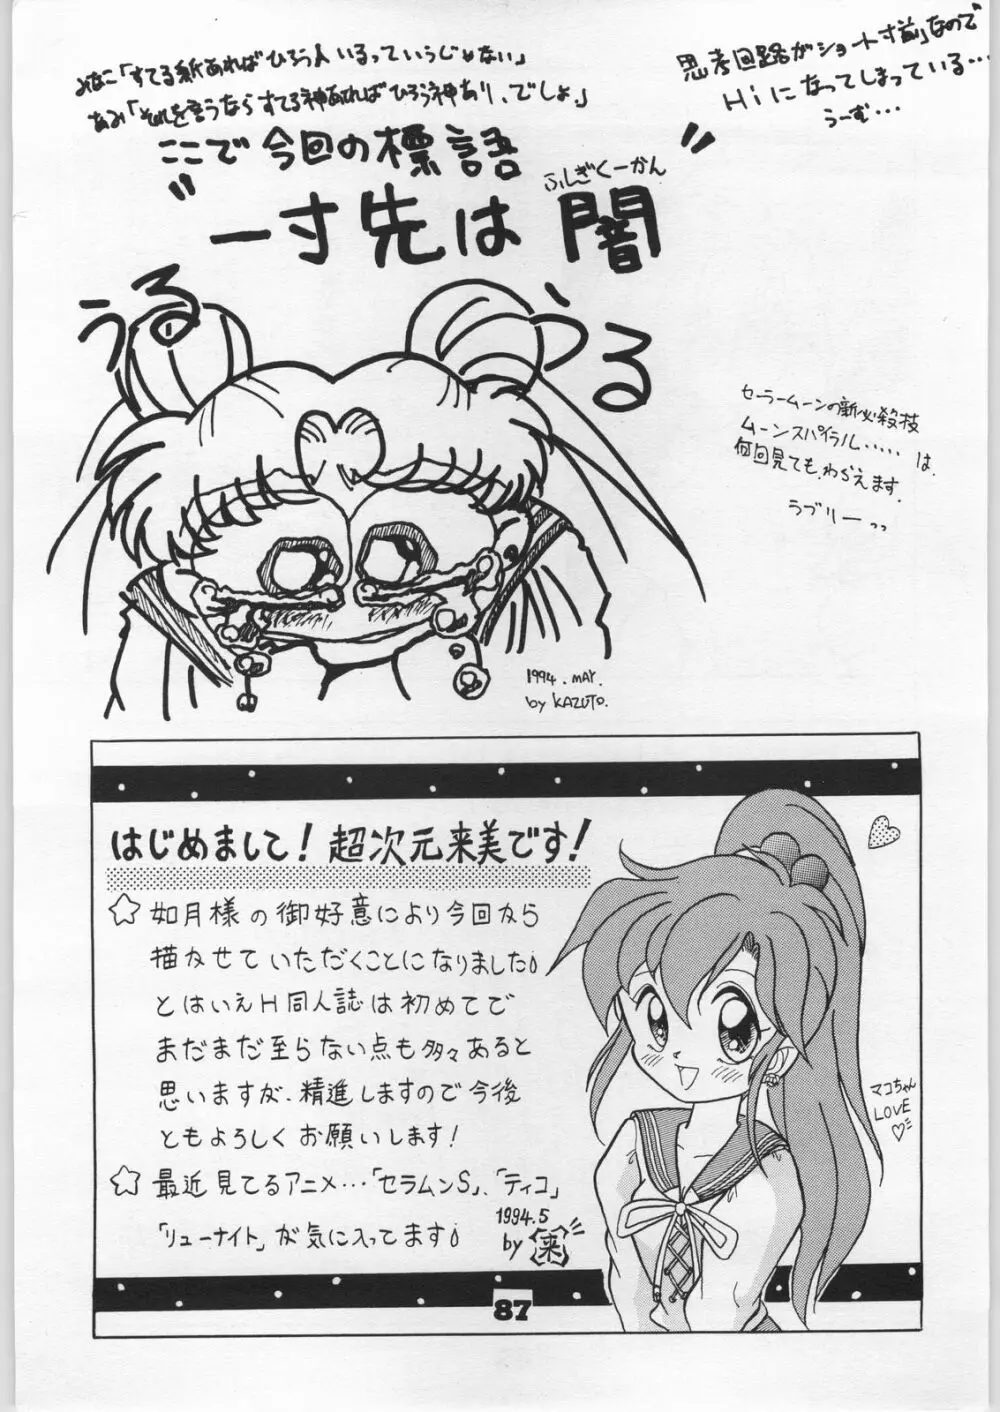 みなこ「すてる紙あればひろう人いるっていうじゃない」
あみ「それを言うならすてる神あればひろう神あり、でしょ。」
思考回路がショート寸前」なので
Hiになってしまっている…
うーむ…
ここで今回の標語
ふしぎくーかん
"一寸先は闇"
うる
うる
セーラームーンの新必殺技
ムーンスパイラル.....は、
何回見てもわらえます。
ラブリーっっ
1994. MAY.
by KAZUTO.
はじめまして!超次元来美です!
☆如月様の御好意により今回から
描かせていただくことになりました
とはいえH同人誌は初めてで
まだまだ至らない点も多々あると
思いますが、精進しますので今後
ともよろしくお願いします!
☆最近見てるアニメ…「セラムンS」、「ティコ」
「リューナイト」が気に入ってます
1994.5
by 来
マコちゃん
LOVE♡
87